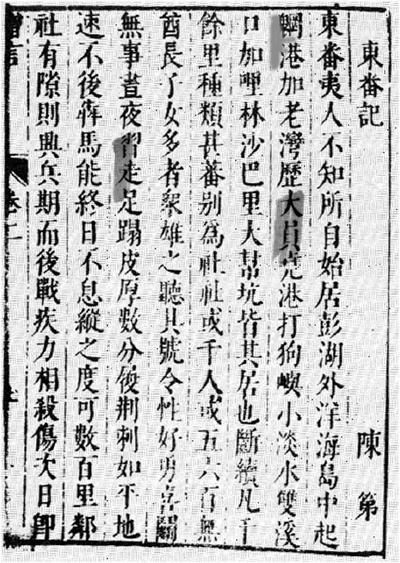 東番記 陳第
東番夷人不知所自始居彭湖外洋海島中起
魍港加老灣歷大員堯港打狗嶼小淡水雙溪
口加哩林沙巴里大幫坑皆其居也斷續凡千
餘里種類甚蕃別為社社或千人或五六百無
酋長子女多者眾雄之聽其號令性好勇喜鬭
無事晝夜習走足蹋皮厚數分履荊刺如平地
速不後犇馬能終日不息縱之度可數百里鄰
社有隙則興兵期而後戰疾力相殺傷次日卽
贈言 卷二